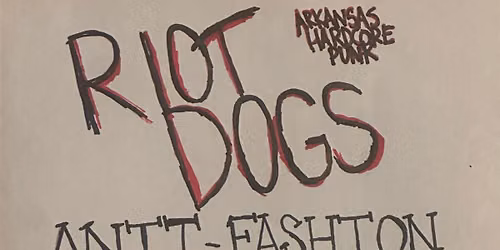 RIOT
DOGS
ARKANSAS
HARDCORE
PUNK
ANTI-FASHION